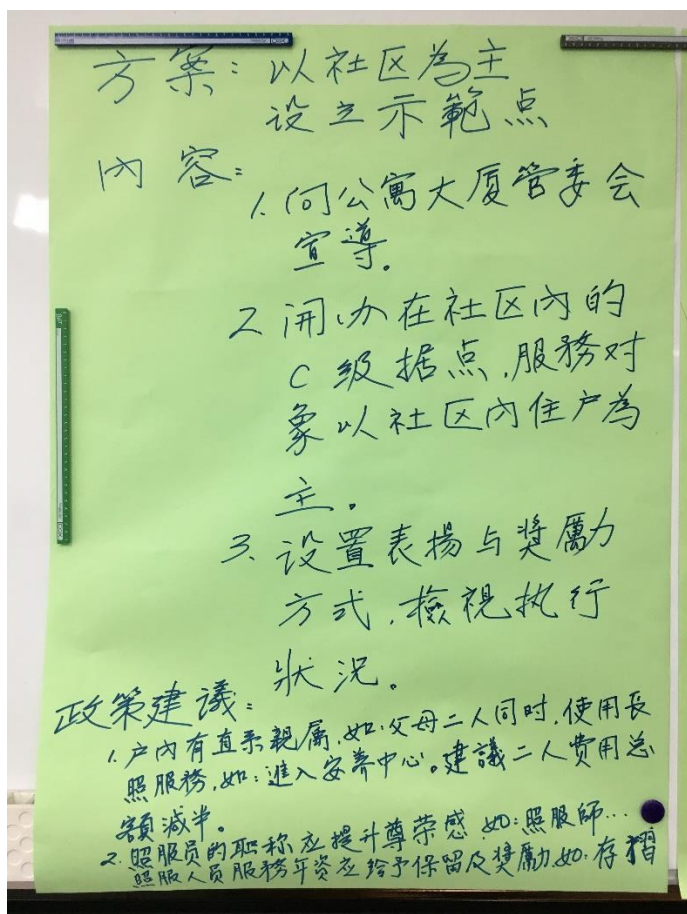 方案：以社区為主
设立示範点
內容：
1. 向公寓大厦管委会
宣導。
2. 開办在社区內的
C级据点，服務对
象以社区內住户為
主。
3. 设置表揚与奬勵
方式，檢視执行
狀况。
政策建議：
1. 户內有直系親属，如：父母二人同时，使用長
照服務，如：進入安养中心。建議二人費用总
額減半。
2. 照服员的职称应提升尊荣感，如：照服師...
照服人员服務年资应给予保留及奬勵，如：存摺